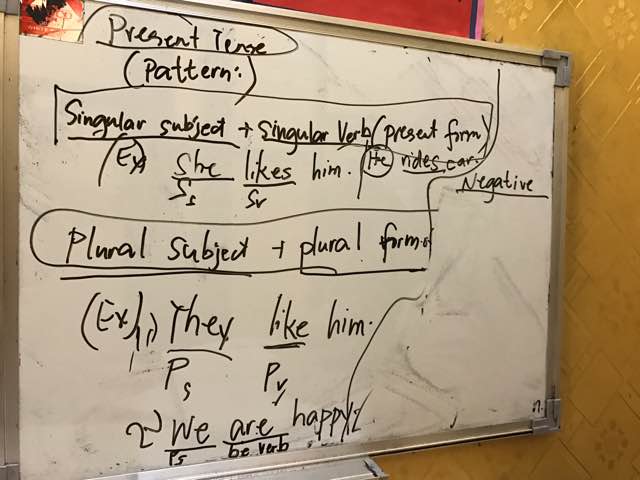 Present Tense
(Pattern:)
Singular subject + Singular Verb (present form)
(Ex) She likes him. He rides car.
Ss Sv
Negative
Plural subject + plural form
(Ex) 1) They like him.
Ps Pv
2) We are happy
Ps be verb